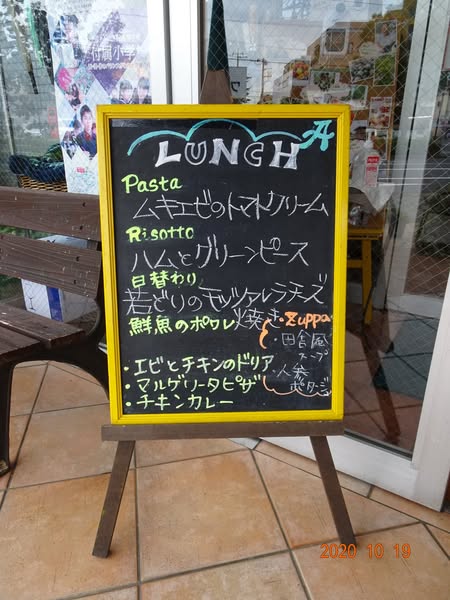 付属小学
LUNCH A
Pasta
ムキエビのトマトクリーム
Risotto
ハムとグリーンピース
日替わり
若どりのモッツァレラチーズ焼き
鮮魚のポワレ
・Zuppa
・田舎風スープ
・人参ポタージュ
・エビとチキンのドリア
・マルゲリータピザ
・チキンカレー
2020 10 19